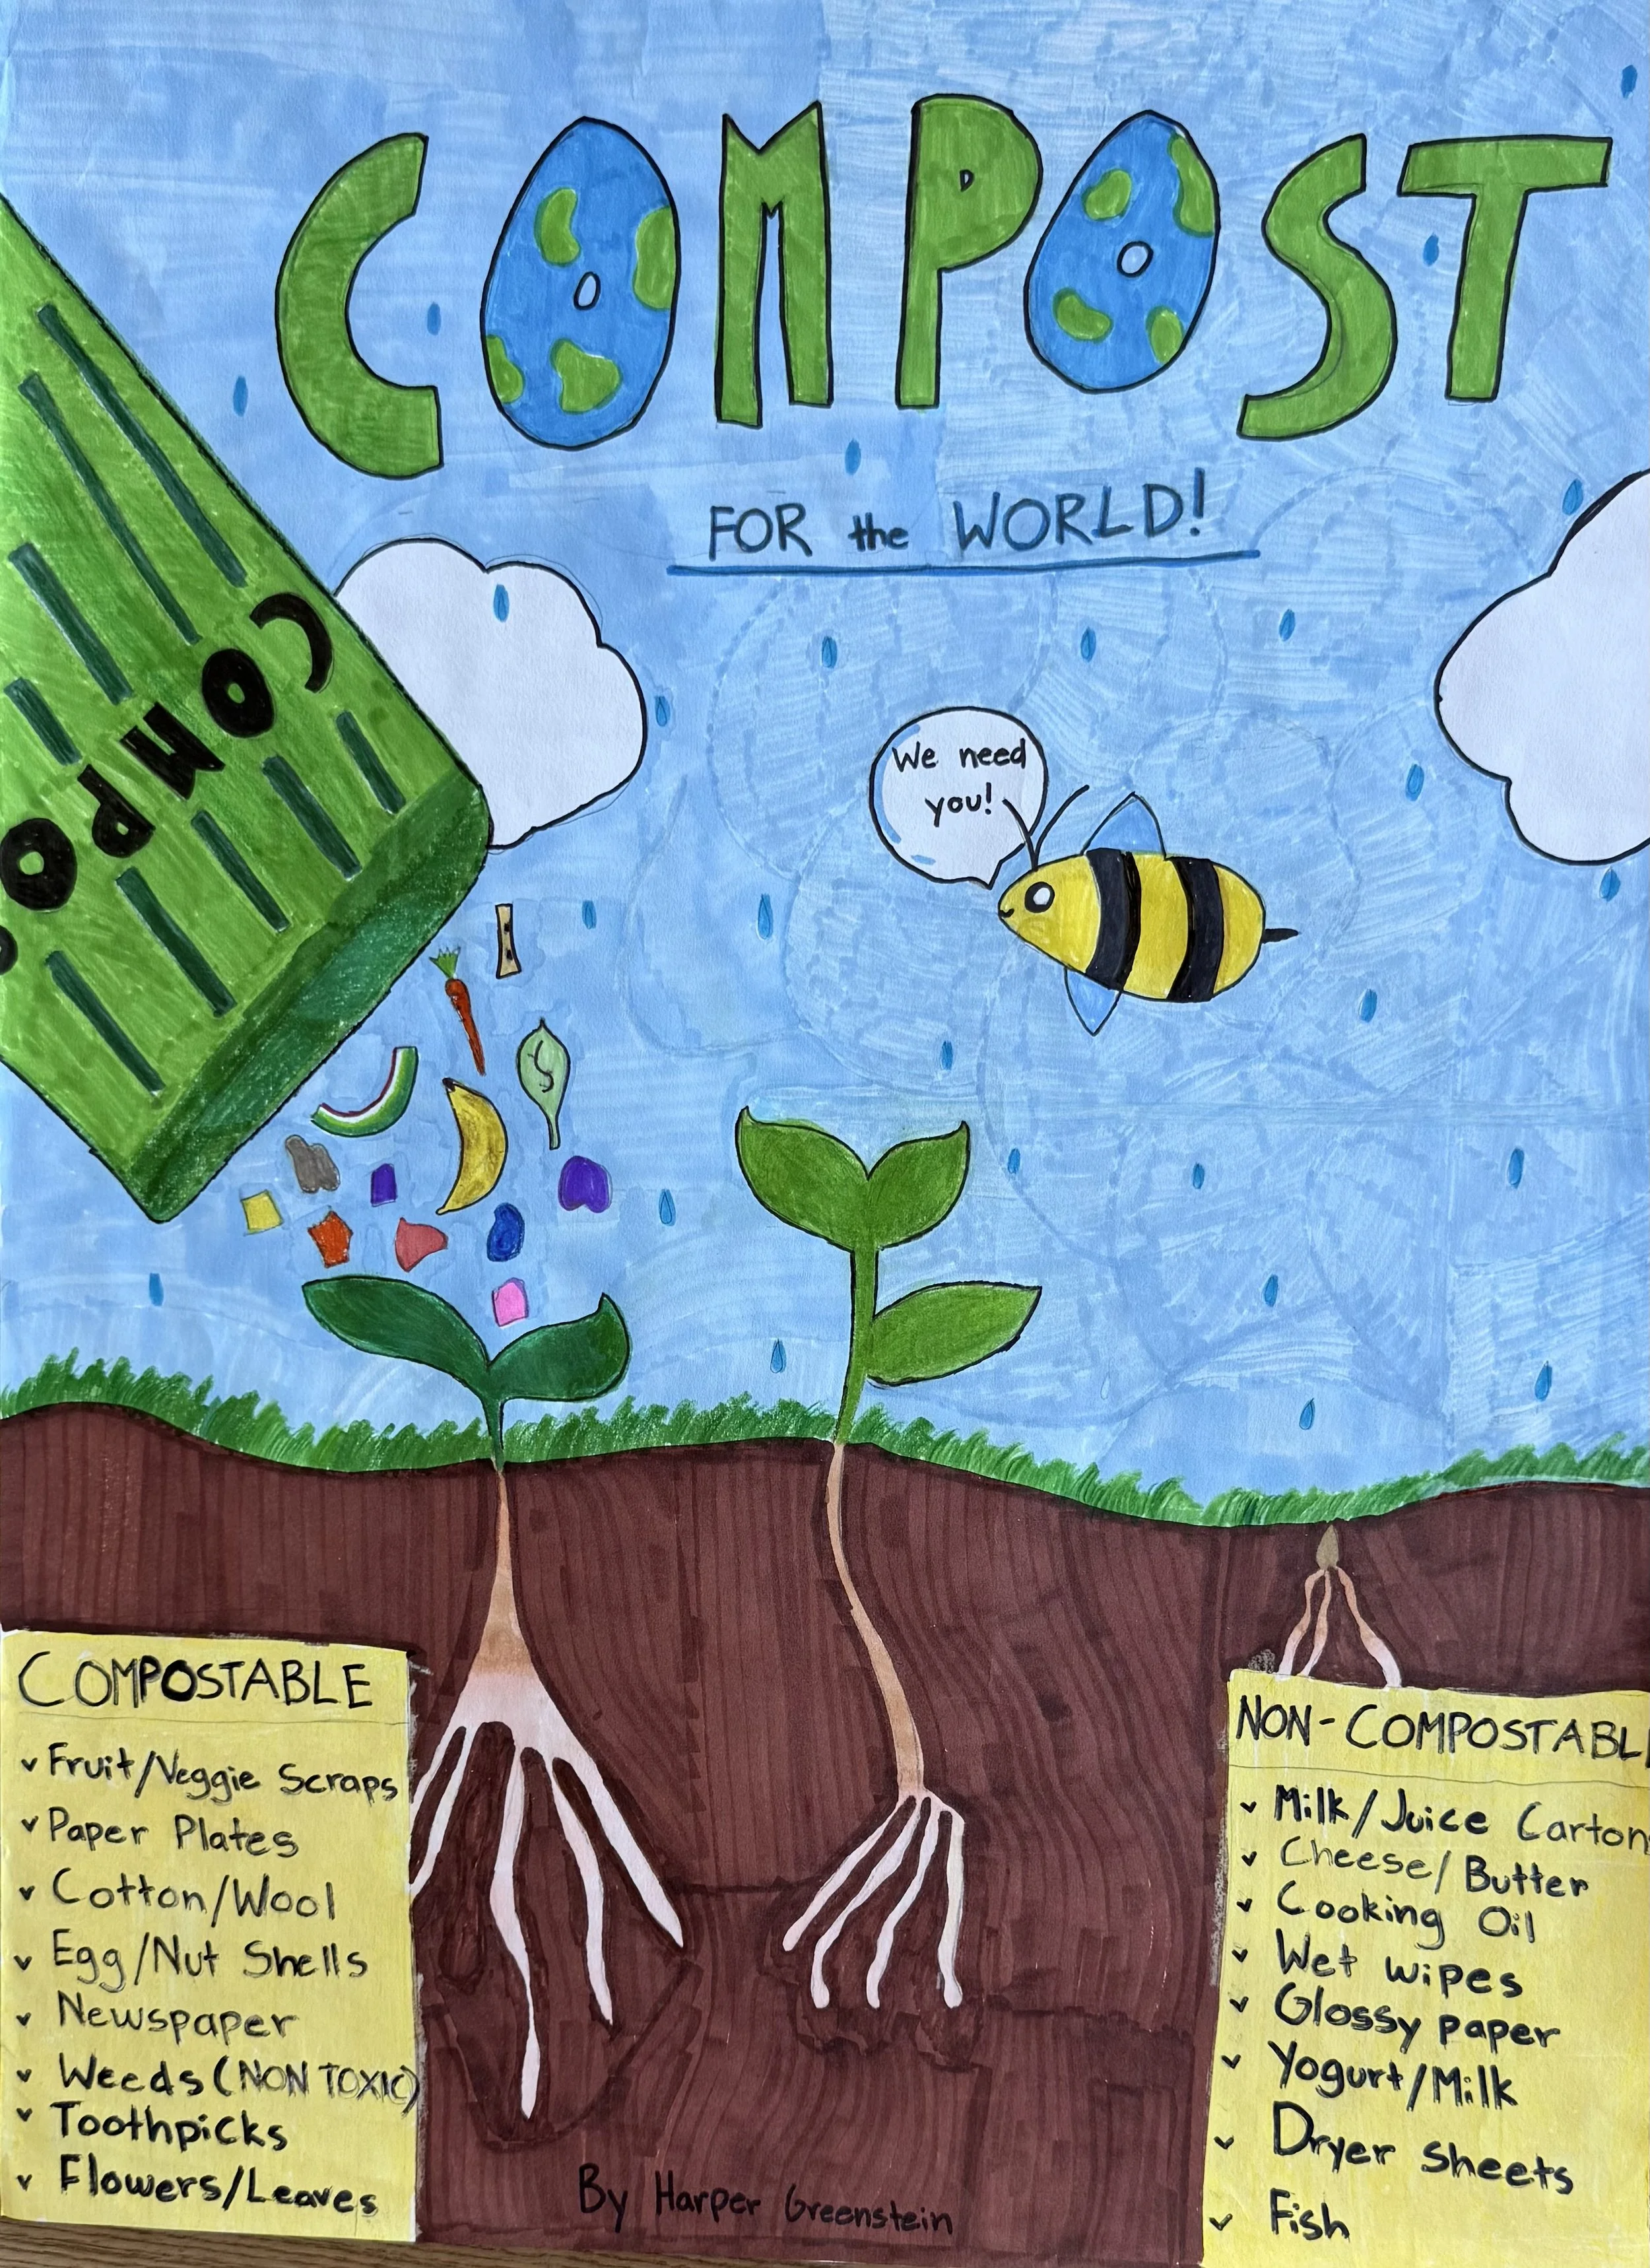 COMPOST
FOR the WORLD!
COMPO
We need
you!
COMPOSTABLE
Fruit/Veggie Scraps
Paper Plates
Cotton/Wool
Egg/Nut Shells
Newspaper
Weeds (NON TOXIC)
Toothpicks
Flowers/Leaves
NON-COMPOSTABL
Milk/Juice Carton
Cheese/Butter
Cooking Oil
Wet wipes
Glossy paper
Yogurt/Milk
Dryer sheets
Fish
By Harper Greenstein